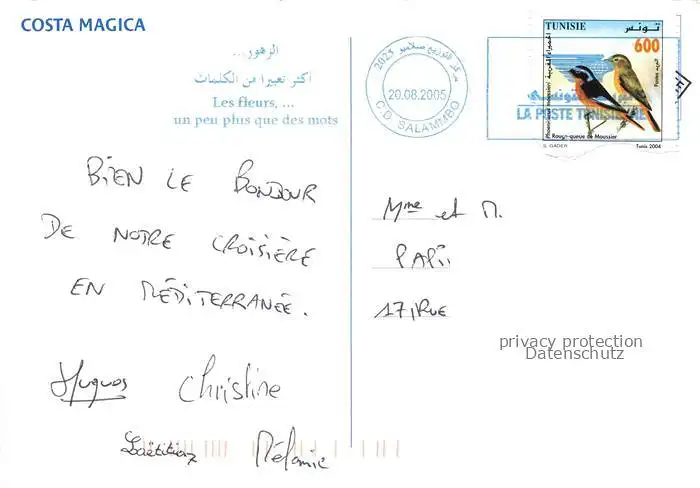 COSTA MAGICA
الزهور...
أكثر تعبيرا من الكلمات
Les fleurs, ...
un peu plus que des mots
BIEN LE BONJOUR
DE NOTRE CROISIÈRE
EN MÉDITERRANÉE.
Hugues Christine
Laëtitia Mélanie
مركز التوزيع صلامبو 2025
20.08.2005
C.D. SALAMMBO
TUNISIE تونس
600
البريد التونسي
LA POSTE TUNISIENNE
Rouge-queue de Moussier
S. GADER Tunis 2004
Mme et M.
PAPii
17, RUE
privacy protection
Datenschutz